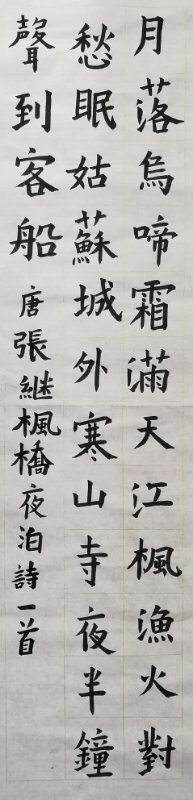 月落烏啼霜滿天江楓漁火對
愁眠姑蘇城外寒山寺夜半鐘
聲到客船 唐張継楓橋夜泊詩一首